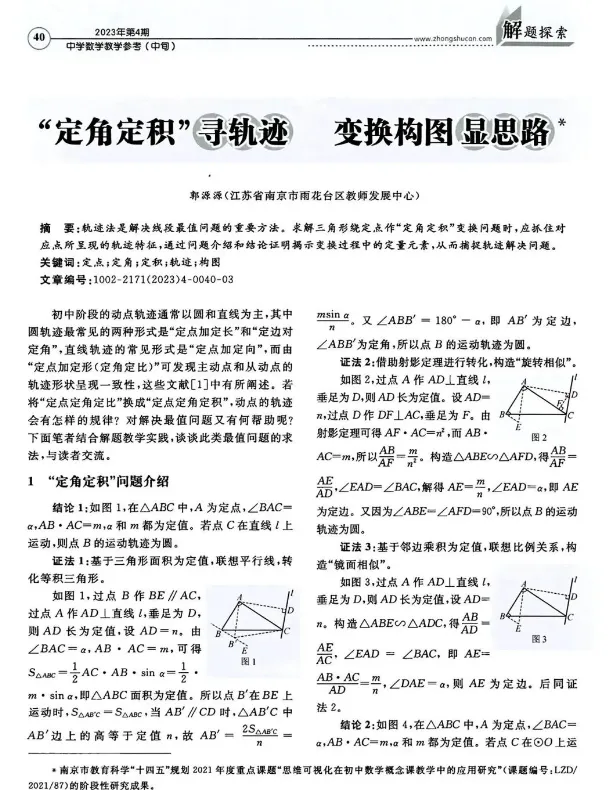 40
2023年第4期
中学数学教学参考（中旬）
www.zhongshucan.com
解题探索
“定角定积”寻轨迹 变换构图显思路*
郭源源(江苏省南京市雨花台区教师发展中心)
摘 要:轨迹法是解决线段最值问题的重要方法。求解三角形绕定点作“定角定积”变换问题时,应抓住对
应点所呈现的轨迹特征,通过问题介绍和结论证明揭示变换过程中的定量元素,从而捕捉轨迹解决问题。
关键词:定点;定角;定积;轨迹;构图
文章编号:1002-2171(2023)4-0040-03
初中阶段的动点轨迹通常以圆和直线为主,其中
圆轨迹最常见的两种形式是“定点加定长”和“定边对
定角”,直线轨迹的常见形式是“定点加定向”,而由
“定点加定形(定角定比)”可发现主动点和从动点的
轨迹形状呈现一致性,这些文献[1]中有所阐述。若
将“定点定角定比”换成“定点定角定积”,动点的轨迹
会有怎样的规律？对解决最值问题又有何帮助呢?
下面笔者结合解题教学实践,谈谈此类最值问题的求
法,与读者交流。
1 “定角定积”问题介绍
结论1:如图1,在△ABC中,A为定点,∠BAC=
α,AB·AC=m,α和m都为定值。若点C在直线l上
运动,则点B的运动轨迹为圆。
证法1:基于三角形面积为定值,联想平行线,转
化等积三角形。
如图1,过点B作BE∥AC,
过点A作AD⊥直线l,垂足为D,
则AD长为定值,设AD=n。由
∠BAC=α,AB·AC=m,可得
S△ABC=1/2 AC·AB·sin α=1/2·
m·sin α,即△ABC面积为定值。所以点B′在BE上
运动时,S△AB′C=S△ABC,当AB′∥CD时,△AB′C中
AB′边上的高等于定值n,故AB′=2S△AB′C/n=
A
B
B′
C
D
E
l
图1
msin α/n。又∠ABB′=180°-α,即AB′为定边,
∠ABB′为定角,所以点B的运动轨迹为圆。
证法2:借助射影定理进行转化,构造“旋转相似”。
如图2,过点A作AD⊥直线l,
垂足为D,则AD长为定值。设AD=
n,过点D作DF⊥AC,垂足为F。由
射影定理可得AF·AC=n²,而AB·
AC=m,所以AB/AF=m/n²。构造△ABE∽△AFD,得AB/AF=
AE/AD,∠EAD=∠BAC,解得AE=m/n,∠EAD=α,即AE
为定边。又因为∠ABE=∠AFD=90°,所以点B的运动
轨迹为圆。
A
B
C
D
E
F
l
图2
证法3:基于邻边乘积为定值,联想比例关系,构
造“镜面相似”。
如图3,过点A作AD⊥直线l,
垂足为D,则AD长为定值,设AD=
n。构造△ABE∽△ADC,得AB/AD=
AE/AC,∠EAD=∠BAC,即AE=
AB·AC/AD=m/n,∠DAE=α,则AE为定边。后同证
法2。
A
B
C
D
E
l
图3
结论2:如图4,在△ABC中,A为定点,∠BAC=
α,AB·AC=m,α和m都为定值。若点C在⊙O上运
*南京市教育科学“十四五”规划2021年度重点课题“思维可视化在初中数学概念课教学中的应用研究”(课题编号:LZD/
2021/87)的阶段性研究成果。